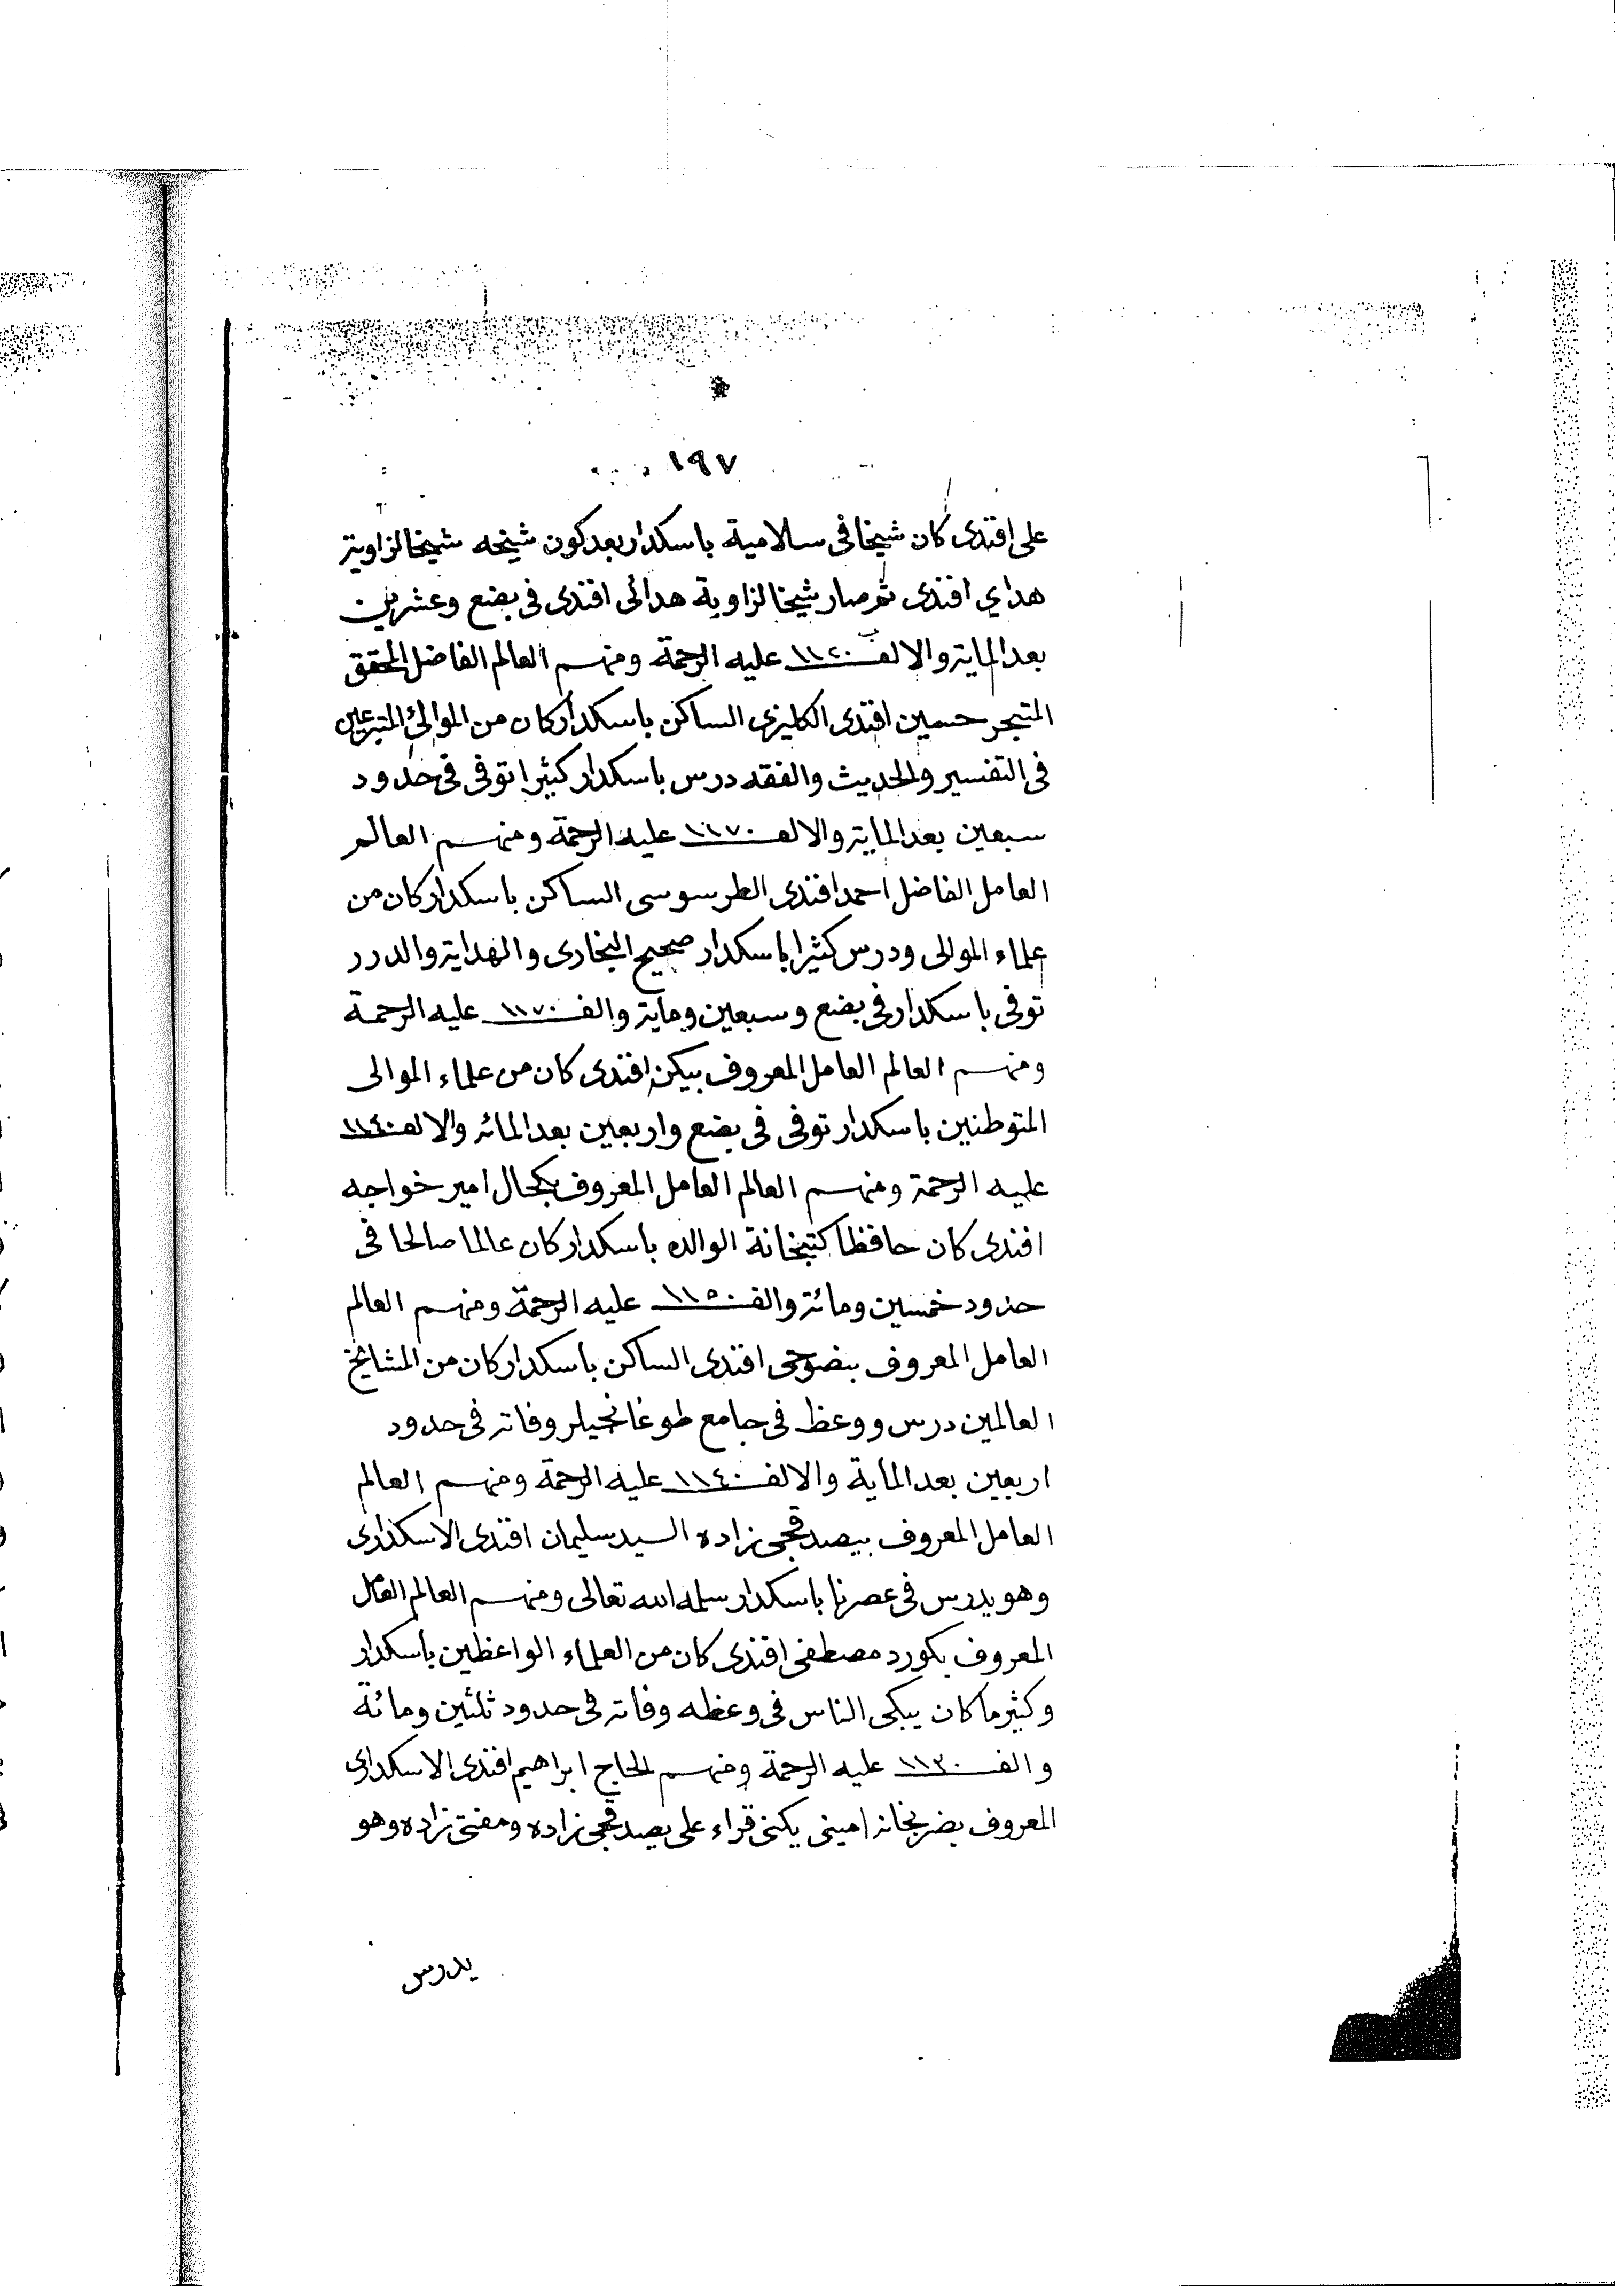 ١٩٧
على افندى كان شيخا فى سلامية باسكدار بعد كون شيخه شيخا لزاوية
هداي افندى ثم صار شيخا لزاوية هدائى افندى فى بضع وعشرين
بعد الماية والالف ١١٢٠ عليه الرحمة ومنهم العالم الفاضل المحقق
المتبحر حسين افندى الكليزى الساكن باسكدار كان من الموالى المتبرعين
فى التفسير والحديث والفقه درس باسكدار كثيرا توفى فى حدود
سبعين بعد الماية والالف ١١٧٠ عليه الرحمة ومنهم العالم
العامل الفاضل احمد افندى الطرسوسى الساكن باسكدار كان من
علماء الموالى ودرس كثيرا باسكدار صحيح البخارى والهداية والدرر
توفى باسكدار فى بضع وسبعين وماية والف ١١٧٠ عليه الرحمة
ومنهم العالم العامل المعروف بيكن افندى كان من علماء الموالى
المتوطنين باسكدار توفى فى بضع واربعين بعد المائه والالف ١١٤٠
عليه الرحمة ومنهم العالم العامل المعروف بكحال امير خواجه
افندى كان حافظا كتبخانة الوالده باسكدار كان عالما صالحا فى
حدود خمسين ومائة والف ١١٥٠ عليه الرحمة ومنهم العالم
العامل المعروف بنصوحى افندى الساكن باسكدار كان من المشائخ
العالمين درس ووعظ فى جامع طوغانجيلر وفاته فى حدود
اربعين بعد الماية والالف ١١٤٠ عليه الرحمة ومنهم العالم
العامل المعروف بيصدقجى زاده السيد سليمان افندى الاسكدارى
وهو يدرس فى عصرنا باسكدار سلمه الله تعالى ومنهم العالم العامل
المعروف بكورد مصطفى افندى كان من العلماء الواعظين باسكدار
وكثيرما كان يبكى الناس فى وعظه وفاته فى حدود ثلثين ومائة
والف ١١٣٠ عليه الرحمة ومنهم الحاج ابراهيم افندى الاسكدارى
المعروف بضربخانه امينى يكنى قراء على يصدقجى زاده ومفتى زاده وهو
يدرس